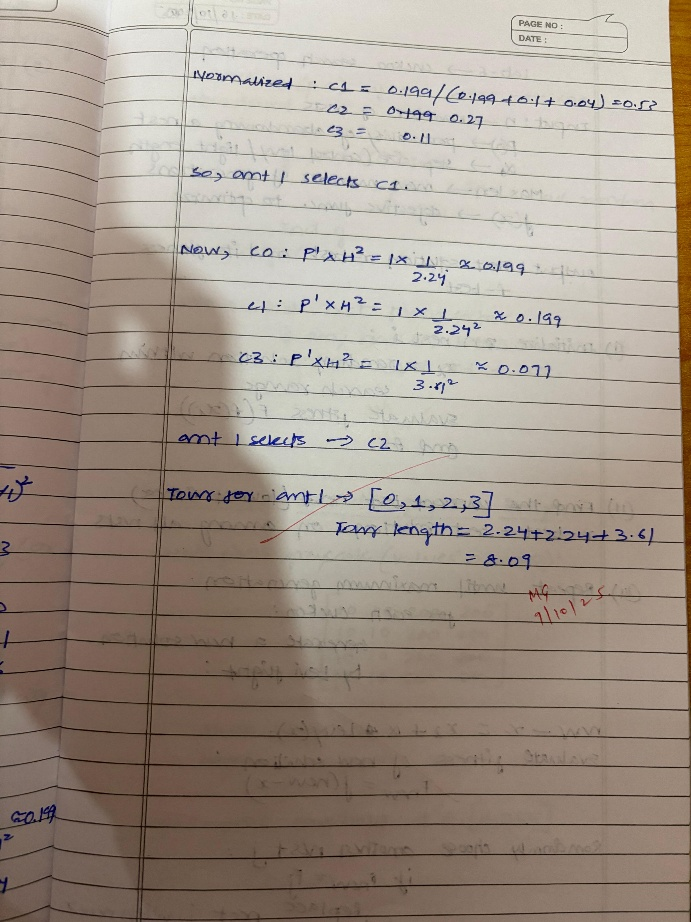 PAGE NO :
DATE :
Normalized : C1 = 0.199/(0.199+0.1+0.04) = 0.53
C2 = 0.199 0.27
C3 = 0.11
So, ant 1 selects C1.
Now, C0 : P' x H² = 1 x 1/2.24 ≈ 0.199
C1 : P' x H² = 1 x 1/2.24² ≈ 0.199
C3 : P' x H² = 1 x 1/3.61² ≈ 0.077
ant 1 selects → C2
Tour for ant 1 → [0, 1, 2, 3]
Tour length = 2.24+2.24+3.61
= 8.09
MG
9/10/25
+1)²
3
1
≈0.199